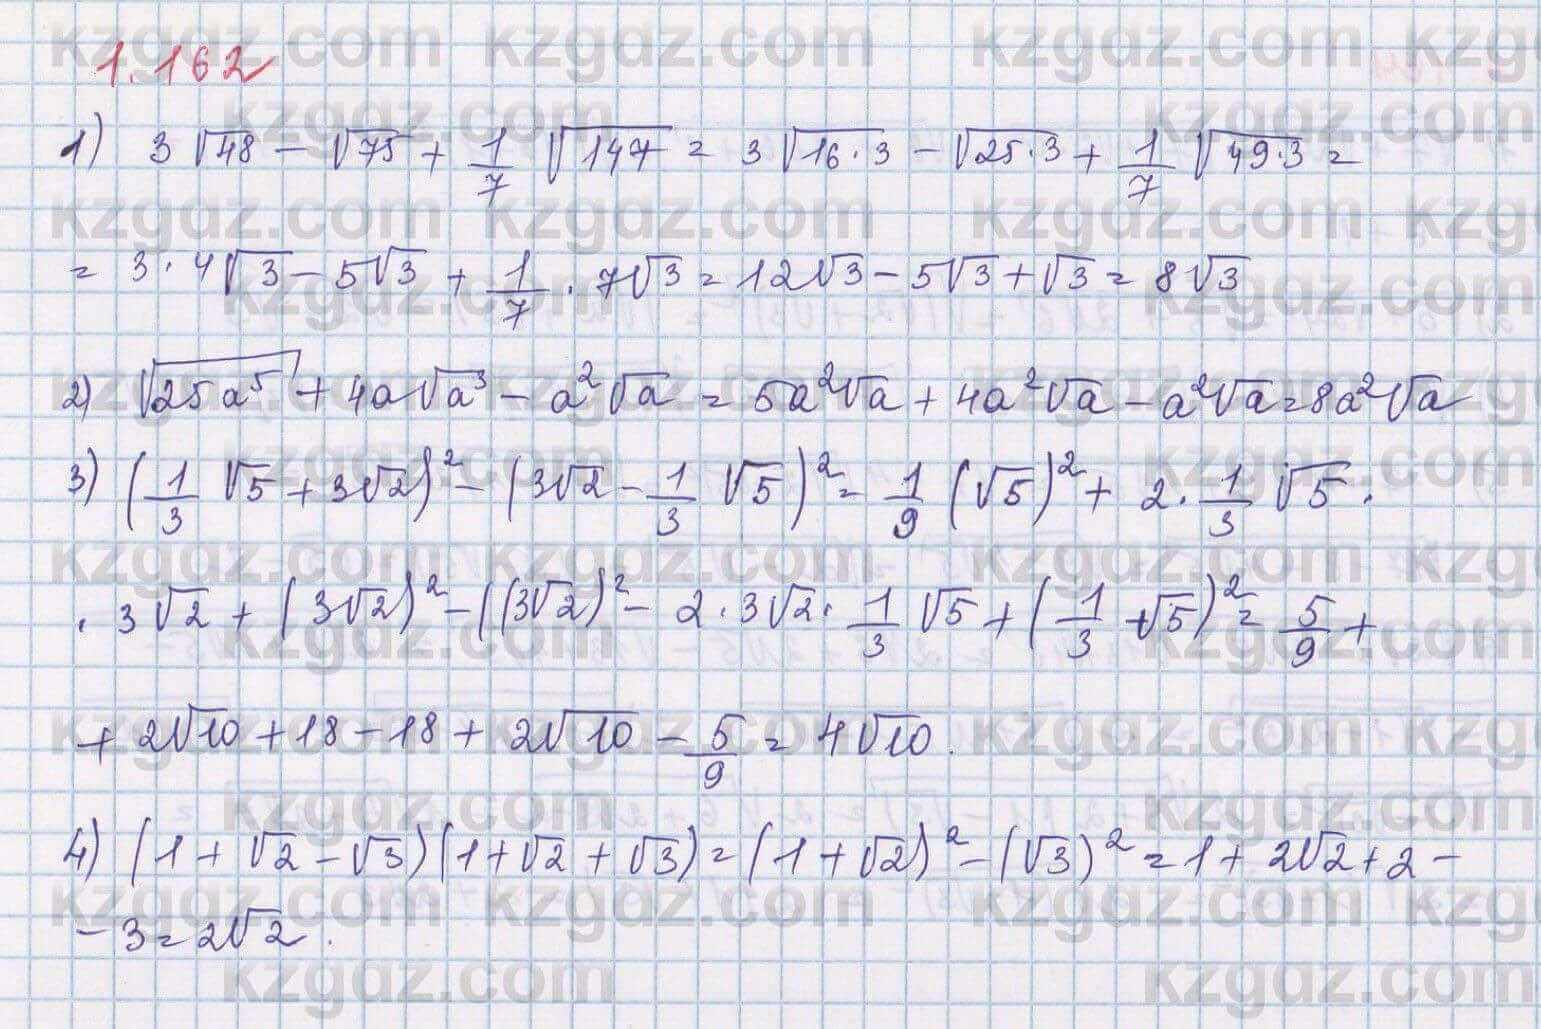 1.162
1) 3√48 − √75 + 1/7 √147 = 3√16·3 − √25·3 + 1/7 √49·3 =
= 3·4√3 − 5√3 + 1/7 · 7√3 = 12√3 − 5√3 + √3 = 8√3
2) √25a⁵ + 4a√a³ − a²√a = 5a²√a + 4a²√a − a²√a = 8a²√a
3) (1/3 √5 + 3√2)² − (3√2 − 1/3 √5)² = 1/9 (√5)² + 2·1/3 √5 ·
· 3√2 + (3√2)² − ((3√2)² − 2·3√2·1/3 √5 + (1/3 √5)² = 5/9 +
+ 2√10 + 18 − 18 + 2√10 − 5/9 = 4√10.
4) (1 + √2 − √3)(1 + √2 + √3) = (1 + √2)² − (√3)² = 1 + 2√2 + 2 −
− 3 = 2√2.
kzgdz.com